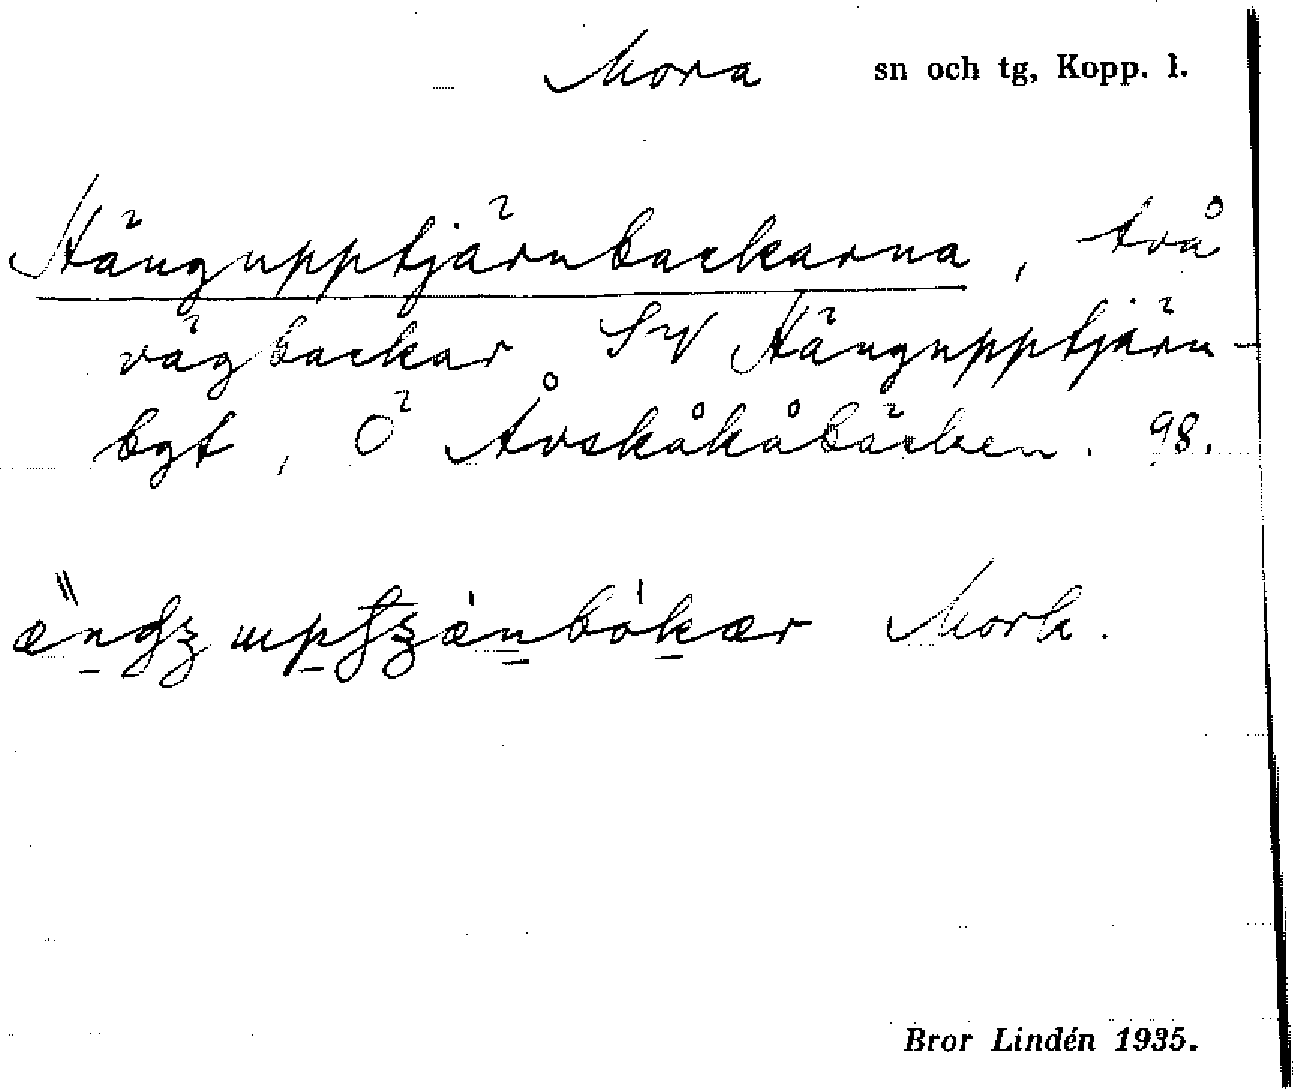 Mora sn och tg, Kopp. l.
Hängupptjärnbackarna, två
vägbackar SV Hängupptjärn-
bgt, Ö Åvskåkåbäcken. 98.
Mork.
Bror Lindén 1935.